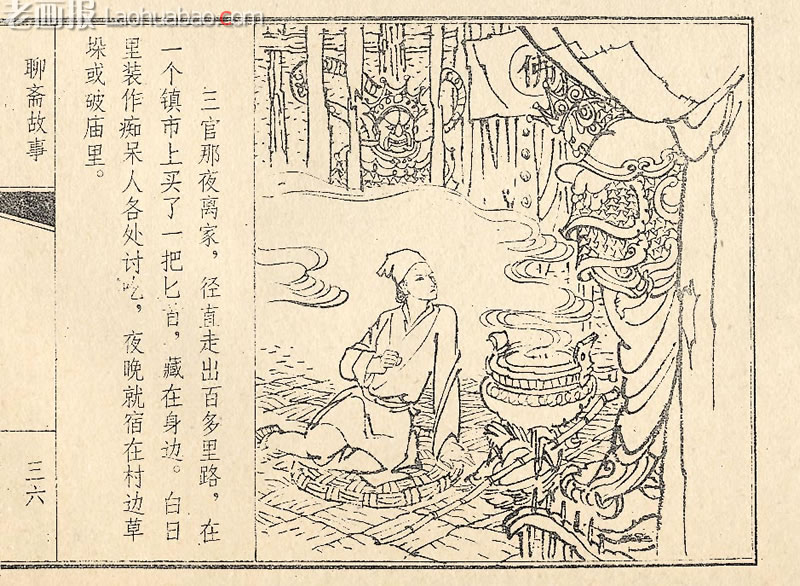 老画报
Laohuabao.com
佛
三官那夜离家，径直走出百多里路，在
一个镇市上买了一把匕首，藏在身边。白日
里装作痴呆人各处讨吃，夜晚就宿在村边草
垛或破庙里。
聊斋故事
三六